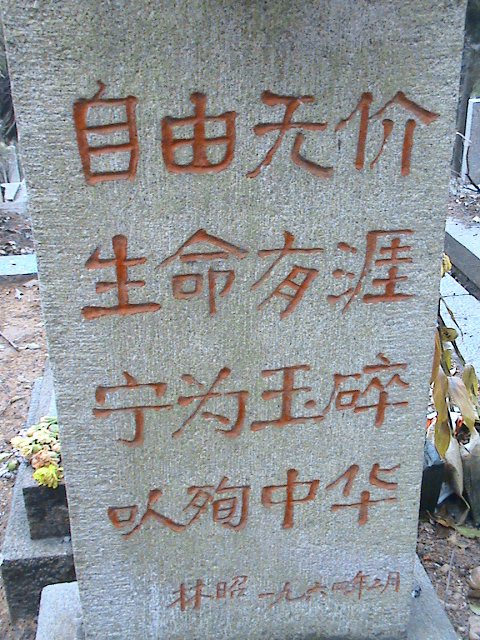 自由无价
生命有涯
宁为玉碎
以殉中华
林昭 一九六四年二月